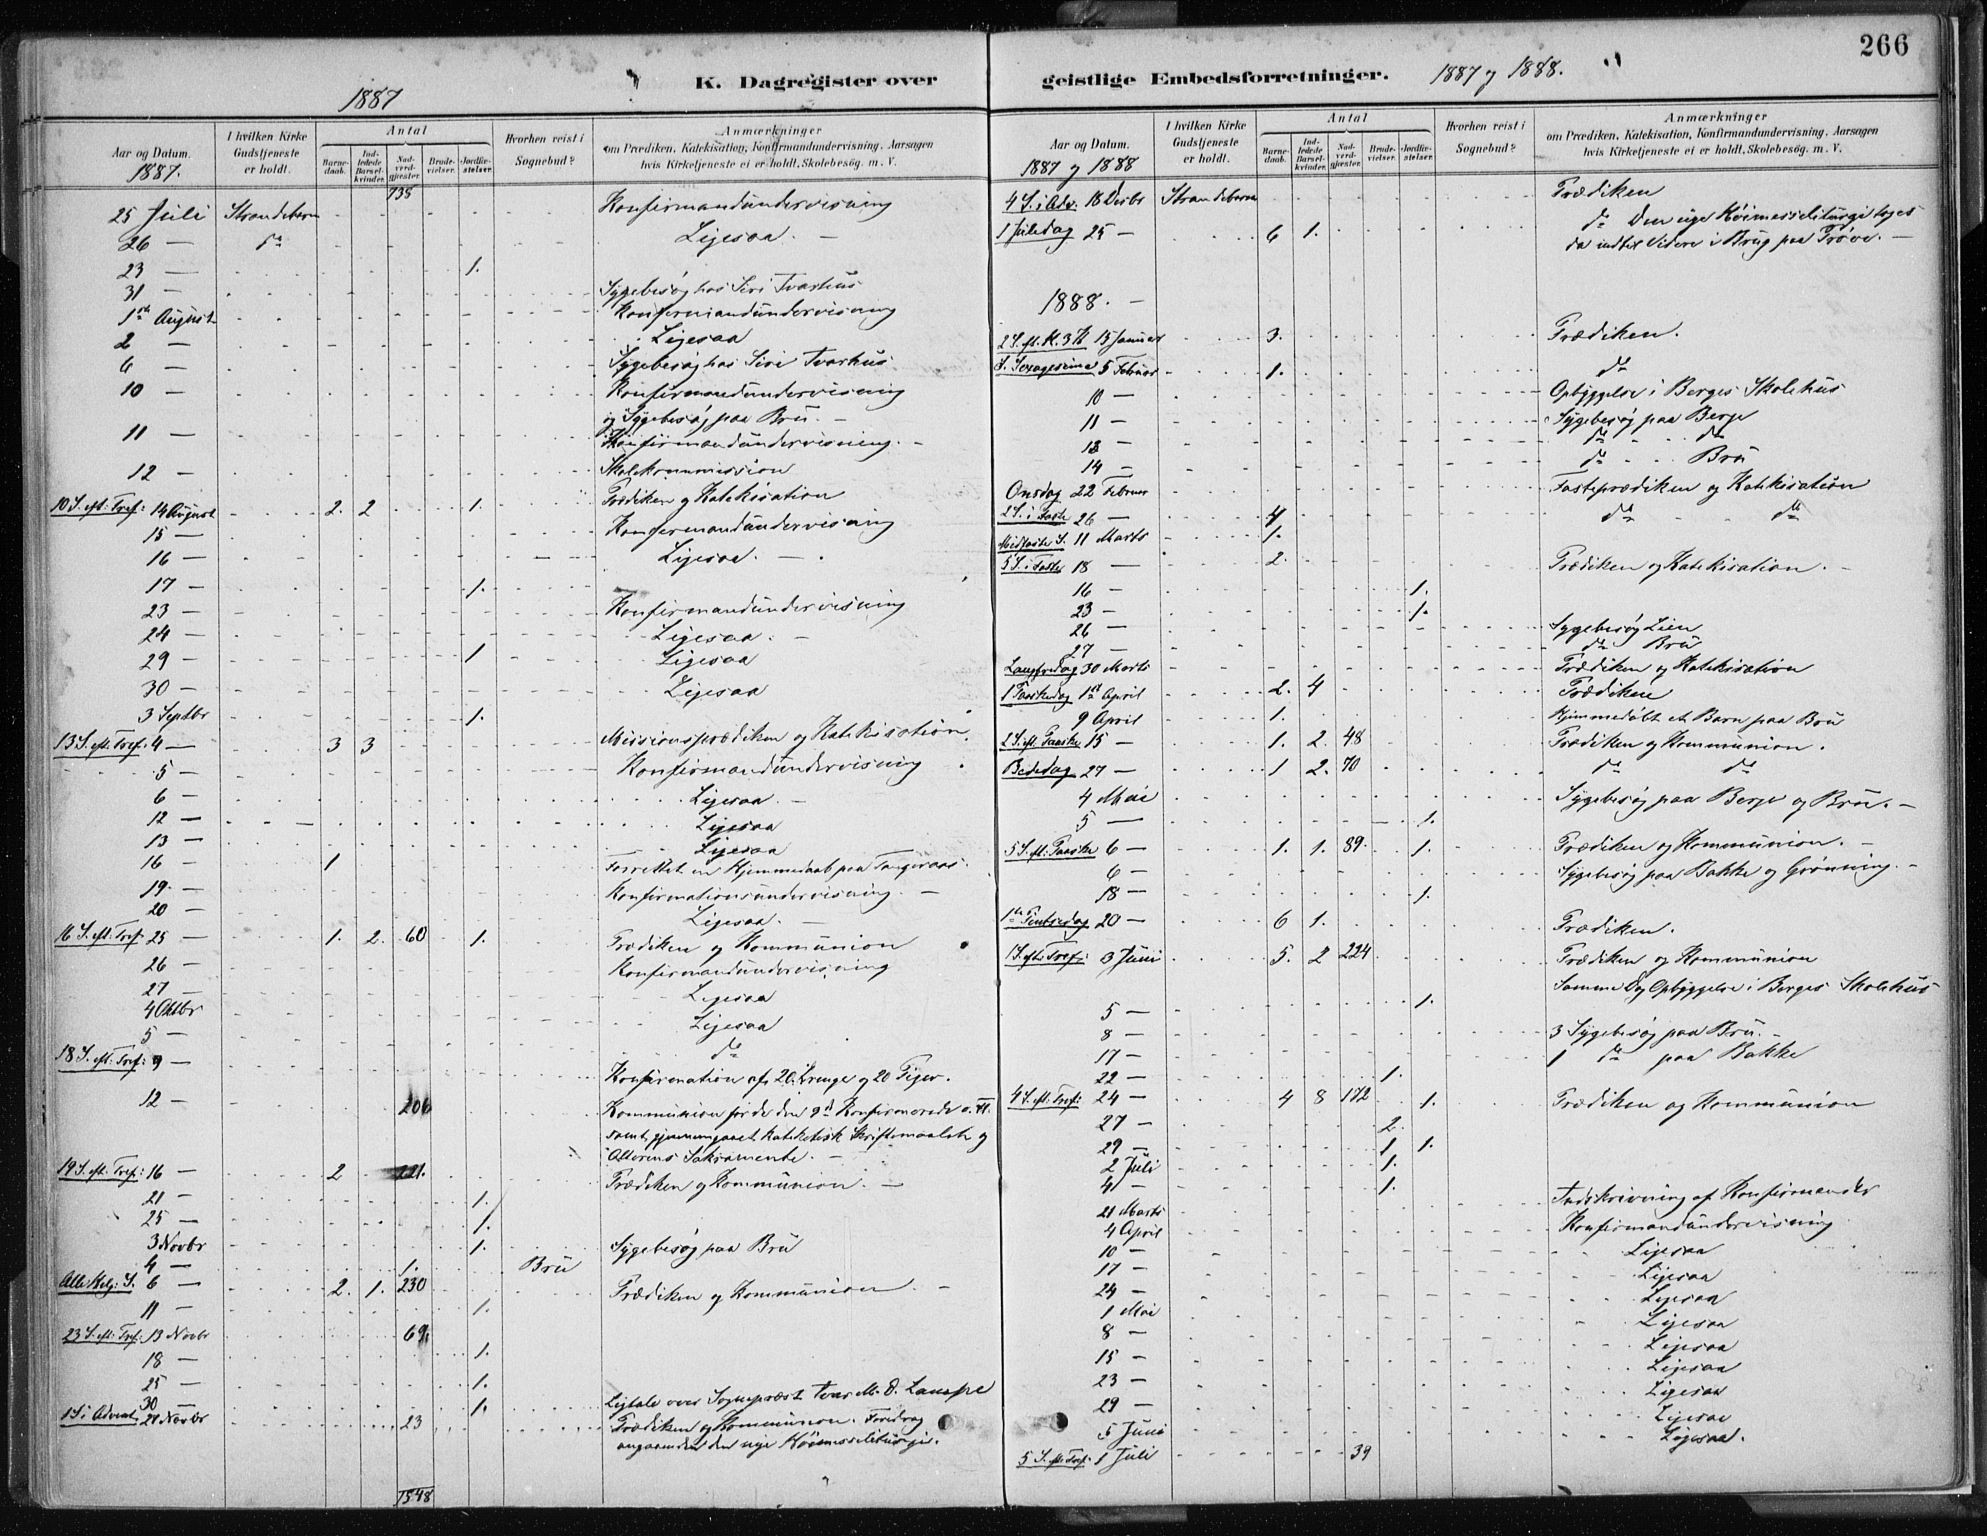 266
K. Dagregister over
1887
Aar og Datum.
1887.
I hvilken Kirke
Gudstjeneste
er holdt.
Antal
Barne-
daab.
Ind-
ledede
Barsel-
kvinder.
Nad-
verd-
gjæster.
Brude-
vielser.
Jordfæ-
stelser.
Hvorhen reist i
Sognebud?
Anmærkninger
om Prædiken, Katekisation, Konfirmandundervisning, Aarsagen
hvis Kirketjeneste ei er holdt, Skolebesøg. m. V.
738
25 Juli Strandebarm Konfirmandundervisning
26 — do Ligesaa. —
23 — 1.
31 — Sygebesøg hos Siri Tvarhus
1ste August Konfirmandundervisning
2 — Ligesaa
6 — Sygebesøg hos Siri Tvarhus
10 — Konfirmandundervisning
og Sygebesøg paa Bru. —
11 — Konfirmandundervisning. —
12 — Skolekommission
10 S. eft: Tref: 14 August 2. 2 1. Prædiken og Katekisation
15 — Konfirmandundervisning
16 — Ligesaa. —
17 — 1.
23 — Konfirmandundervisning
24 — Ligesaa. —
29 — 1 Ligesaa
30 — Ligesaa
3 Septbr 1.
13 S. eft. Tref: 4 — 3 3 Missionsprædiken og Katekisation.
5 — Konfirmandundervisning
6 — Ligesaa. —
12 — Ligesaa
13 — Ligesaa
16 — 1 Forrettet en Hjemmedaab paa Tangeraas.
19. — Konfirmationsundervisning. —
20 — Ligesaa. —
16 S. eft. Tref 25 — 1. 2. 60 1. Prædiken og Kommunion
26 — Konfirmandundervisning
27 — Ligesaa
4 Oktbr Ligesaa
5 — do
18 S. eft: Tref: 9 — Konfirmation af 20 Drenge og 20 Piger.
12 — 206 Kommunion for de den 9d Konfirmerede o. Fl.
samt gjennemgaaet kateketisk Skriftemaalets og
Alterens Sakramente. —
19 S. eft. Tref: 16 — 2 221. Prædiken og Kommunion. —
21 — 1.
25 — 1.
3 Novbr 1. Sygebesøg paa Bru
4 — 1. Bru
Alle Helg: S. 6 — 2. 1. 230 Prædiken og Kommunion. —
11 — 1.
23 S. eft: Tref: 13 Novbr 69.
18 — 1.
25 — 1.
30 1. Ligtale over Sogneprest Ivar M. D. Lampe
1 S. i Advent 27 Novbr 23 Prædiken og Kommunion. Foredrag
angaaende den nye Høimesseliturgi.
1548
geistlige Embedsforretninger.
1887 og 1888.
Aar og Datum.
1887 og 1888
I hvilken Kirke
Gudstjeneste
er holdt.
Antal
Barne-
daab.
Ind-
ledede
Barsel-
kvinder.
Nad-
verd-
gjæster.
Brude-
vielser.
Jordfæ-
stelser.
Hvorhen reist i
Sognebud?
Anmærkninger
om Prædiken, Katekisation, Konfirmandundervisning, Aarsagen
hvis Kirketjeneste ei er holdt, Skolebesøg. m. V.
4 S. i Adv. 18 Decbr Strandebarm Prædiken
1 Juledag 25 — 6 1. do Den nye Høimesseliturgi toges
da indtil Videre i Brug paa Prøve. —
1888. —
2 S. eft. H. 3 K 15 Januar 3. Prædiken.
S. Sexagesima 5 Februar 1. do
10 — Opbyggelse i Berges Skolehus
11 — Sygebesøg paa Berge
13 — do do
14 — do Bru
Onsdag 22 Februar Fasteprædiken og Katekisation
2 S. i Faste 26 — 4 do do
Midfaste S. 11 Marts 1.
5 S. i Faste 18 — 2. Prædiken og Katekisation. —
16 — 1.
23 — 1.
26 — Sygebesøg Lien
27 — do Bru
Langfredag 30 Marts Prædiken og Katekisation
1 Paaskedag 1ste April 2. 4 Prædiken
9 April 1. Hjemmedøbt et Barn paa Bru
2 S. eft. Paaske 15 — 1. 2. 48 Prædiken og Kommunion.
Bededag 27 — 1 2. 70 do do
4 Mai Sygebesøg paa Berge og Bru. —
5 — 1.
5 S. eft: Paaske 6 — 1. 1. 89. 1. Prædiken og Kommunion. —
6 — Sygebesøg paa Bakke og Grønning. —
18 — 1.
1ste Pintsedag 20 — 6 1. Prædiken.
1 S. eft: Tref: 3 Juni 5. 2 224 Prædiken og Kommunion
Samme Dag Opbyggelse i Berges Skolehus
5 — 1.
8 — 3 Sygebesøg paa Bru. —
17 — 1 do paa Bakke
22 — 1.
4 S. eft Tref: 24 — 4 8 172 1. Prædiken og Kommunion
27 — 2.
29 — 1 1.
2 Juli 1.
4 — 1.
21 Marts Indskrivning af Konfirmander
4 April Konfirmandundervisning
10 — Ligesaa
17 — Ligesaa
24 — Ligesaa
1 Mai Ligesaa
8 — Ligesaa
15 — Ligesaa
23 — Ligesaa
29 — Ligesaa
5 Juni Ligesaa.
5 S. eft Tref. 1 Juli 39